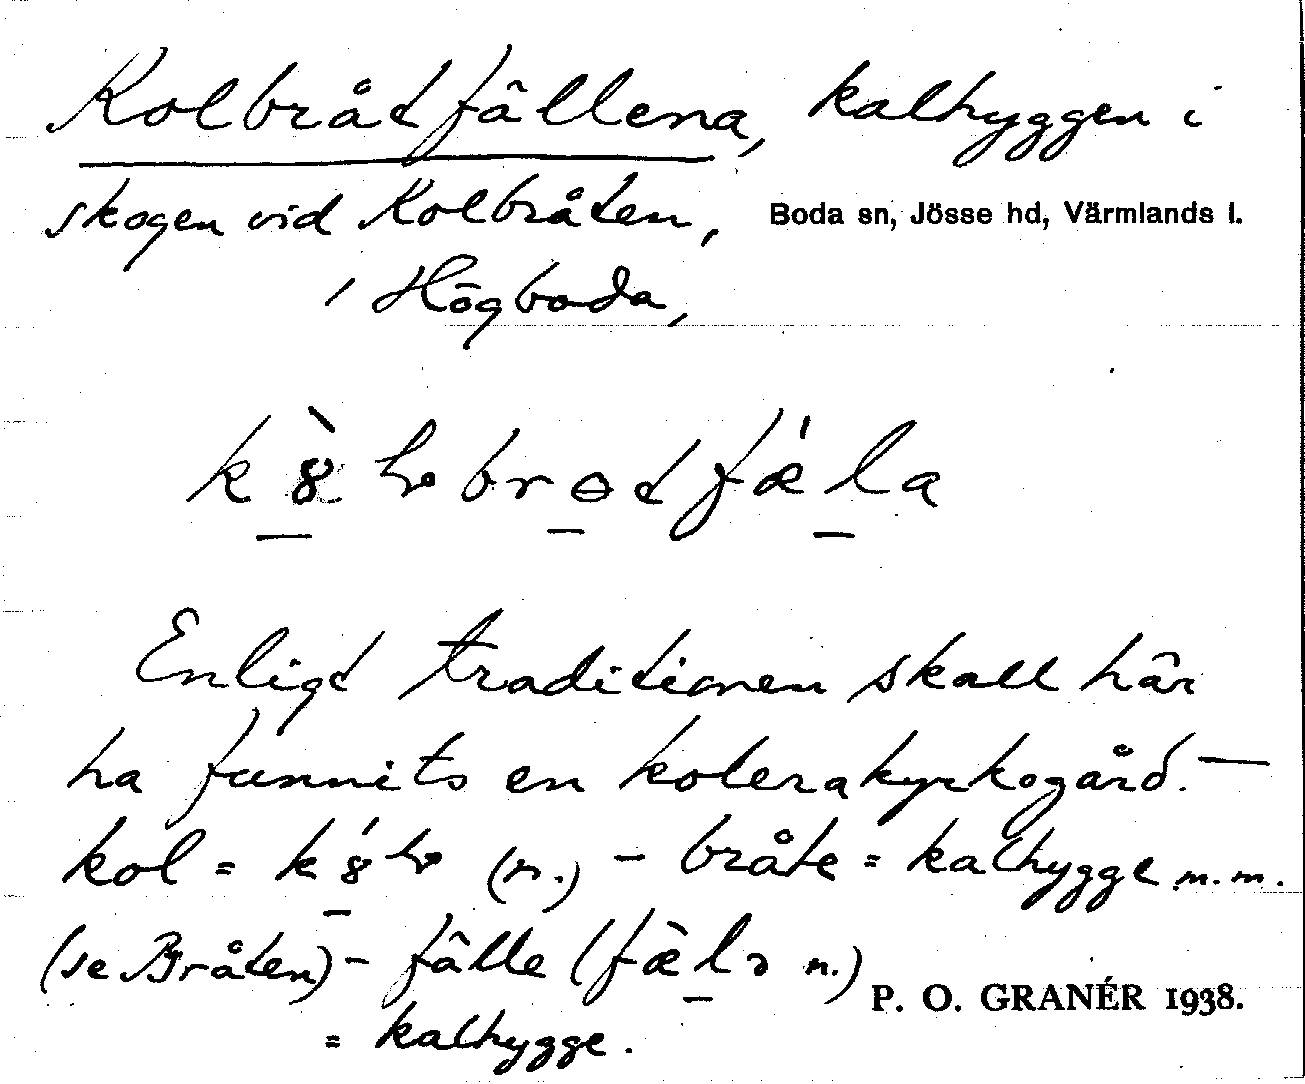 Kolbråtfällena, kalhyggen i
skogen vid Kolbråten, Boda sn, Jösse hd, Värmlands l.
i Högboda,
Enligt traditionen skall här
ha funnits en kolerakyrkogård. —
kol = (n.) – bråte = kalhygge m.m.
(se Bråten) – fälle (fæ̀lə n.) P. O. GRANÉR 1938.
= kalhygge.